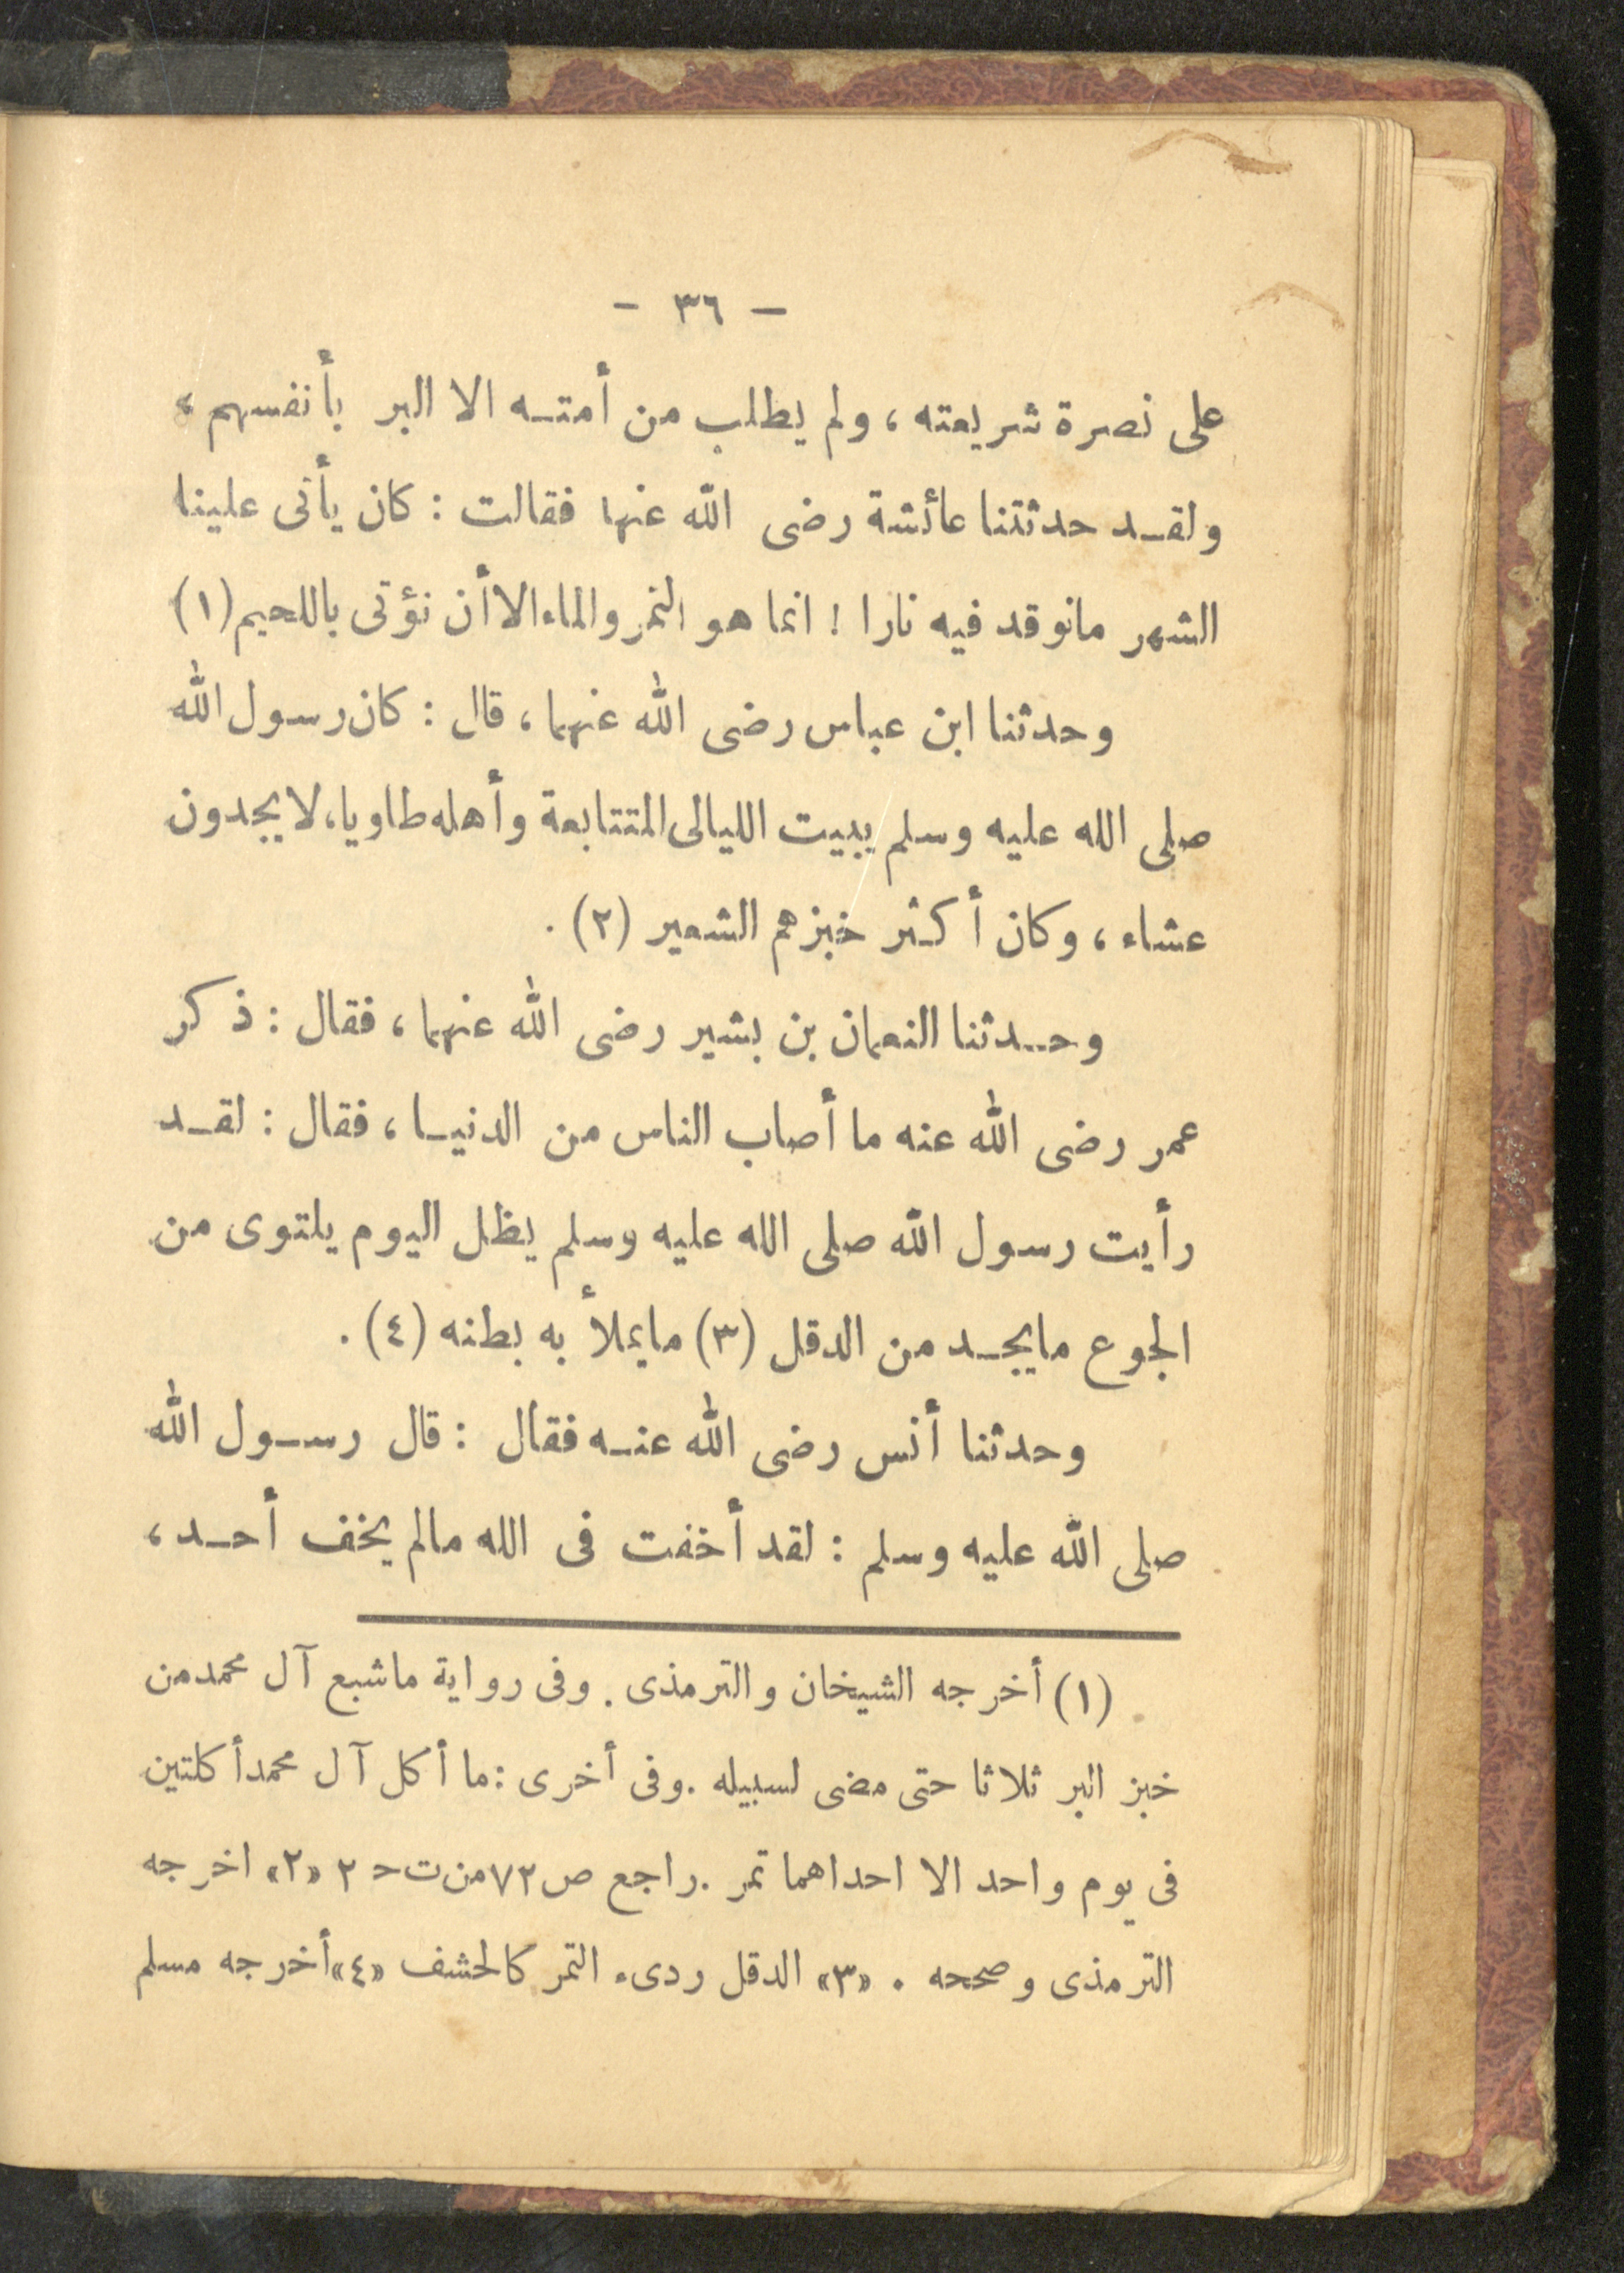 — ٣٦ —
على نصرة شريعته، ولم يطلب من أمته الا البر بأنفسهم،
ولقد حدثتنا عائشة رضى الله عنها فقالت : كان يأتى علينا
الشهر مانوقد فيه نارا ! انما هو التمر والماء الا أن نؤتى باللحيم (١)
وحدثنا ابن عباس رضى الله عنهما، قال : كان رسول الله
صلى الله عليه وسلم يبيت الليالى المتتابعة وأهله طاويا، لايجدون
عشاء، وكان أكثر خبزهم الشعير (٢) .
وحدثنا النعمان بن بشير رضى الله عنهما، فقال : ذكر
عمر رضى الله عنه ما أصاب الناس من الدنيا، فقال : لقد
رأيت رسول الله صلى الله عليه وسلم يظل اليوم يلتوى من
الجوع مايجد من الدقل (٣) مايملأ به بطنه (٤) .
وحدثنا أنس رضى الله عنه فقال : قال رسول الله
صلى الله عليه وسلم : لقد أخفت فى الله مالم يخف أحد،
(١) أخرجه الشيخان والترمذى . وفى رواية ماشبع آل محمد من
خبز البر ثلاثا حتى مضى لسبيله . وفى أخرى : ما أكل آل محمد أكلتين
فى يوم واحد الا احداهما تمر . راجع ص ٧٢ من ت حـ ٢ «٢» اخرجه
الترمذى وصححه . «٣» الدقل ردىء التمر كالحشف «٤» أخرجه مسلم